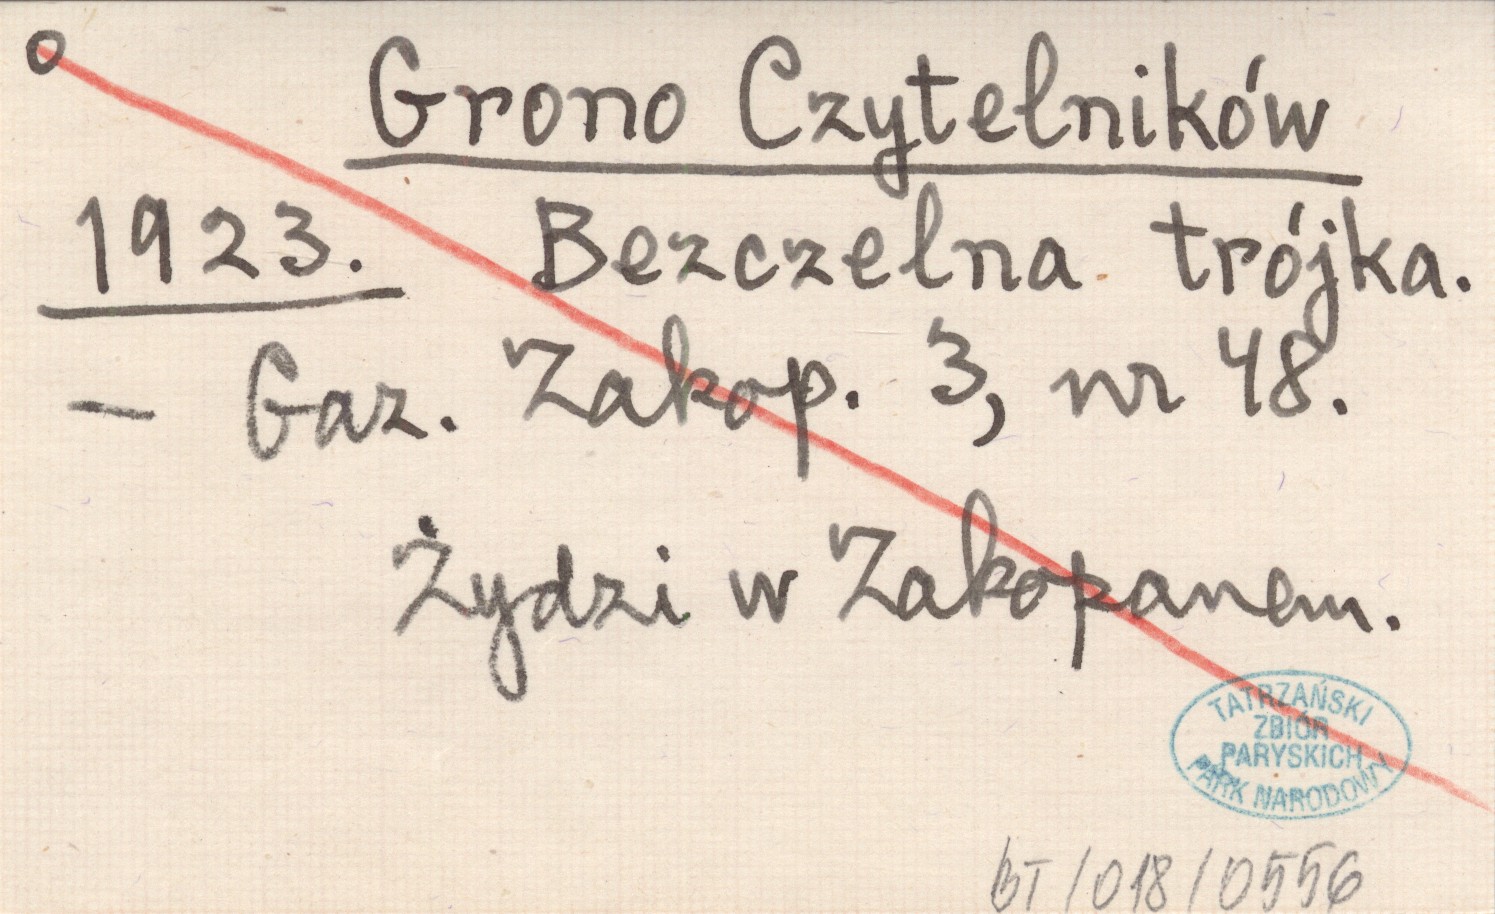 Grono Czytelników
1923. Bezczelna trójka.
– Gaz. Zakop. 3, nr 48.
Żydzi w Zakopanem.
TATRZAŃSKI
ZBIÓR
PARYSKICH
PARK NARODOWY
BT/018/0556